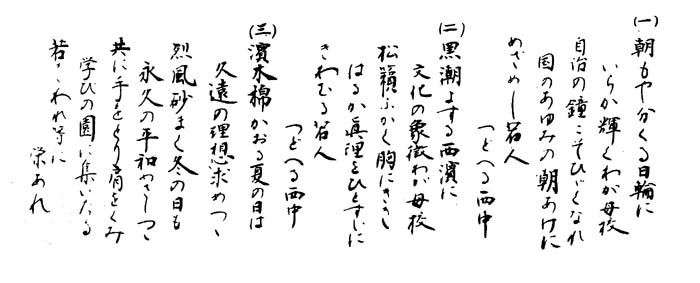 (一)朝もや分くる日輪に
いらか輝くわが母校
自治の鐘こそひゞくなれ
国のあゆみの朝あけに
めざめし若人
つどへる西中
(二)黒潮よする西濱に
文化の象徴わが母校
松籟ふかく胸にきゝ
はるか眞理をひとすじに
きわむる若人
つどへる西中
(三)濱木棉かおる夏の日は
久遠の理想求めつゝ
烈風砂まく冬の日も
永久の平和めざしつゝ
共に手をとり肩をくみ
学びの園に集いたる
若きわれ等に
栄あれ